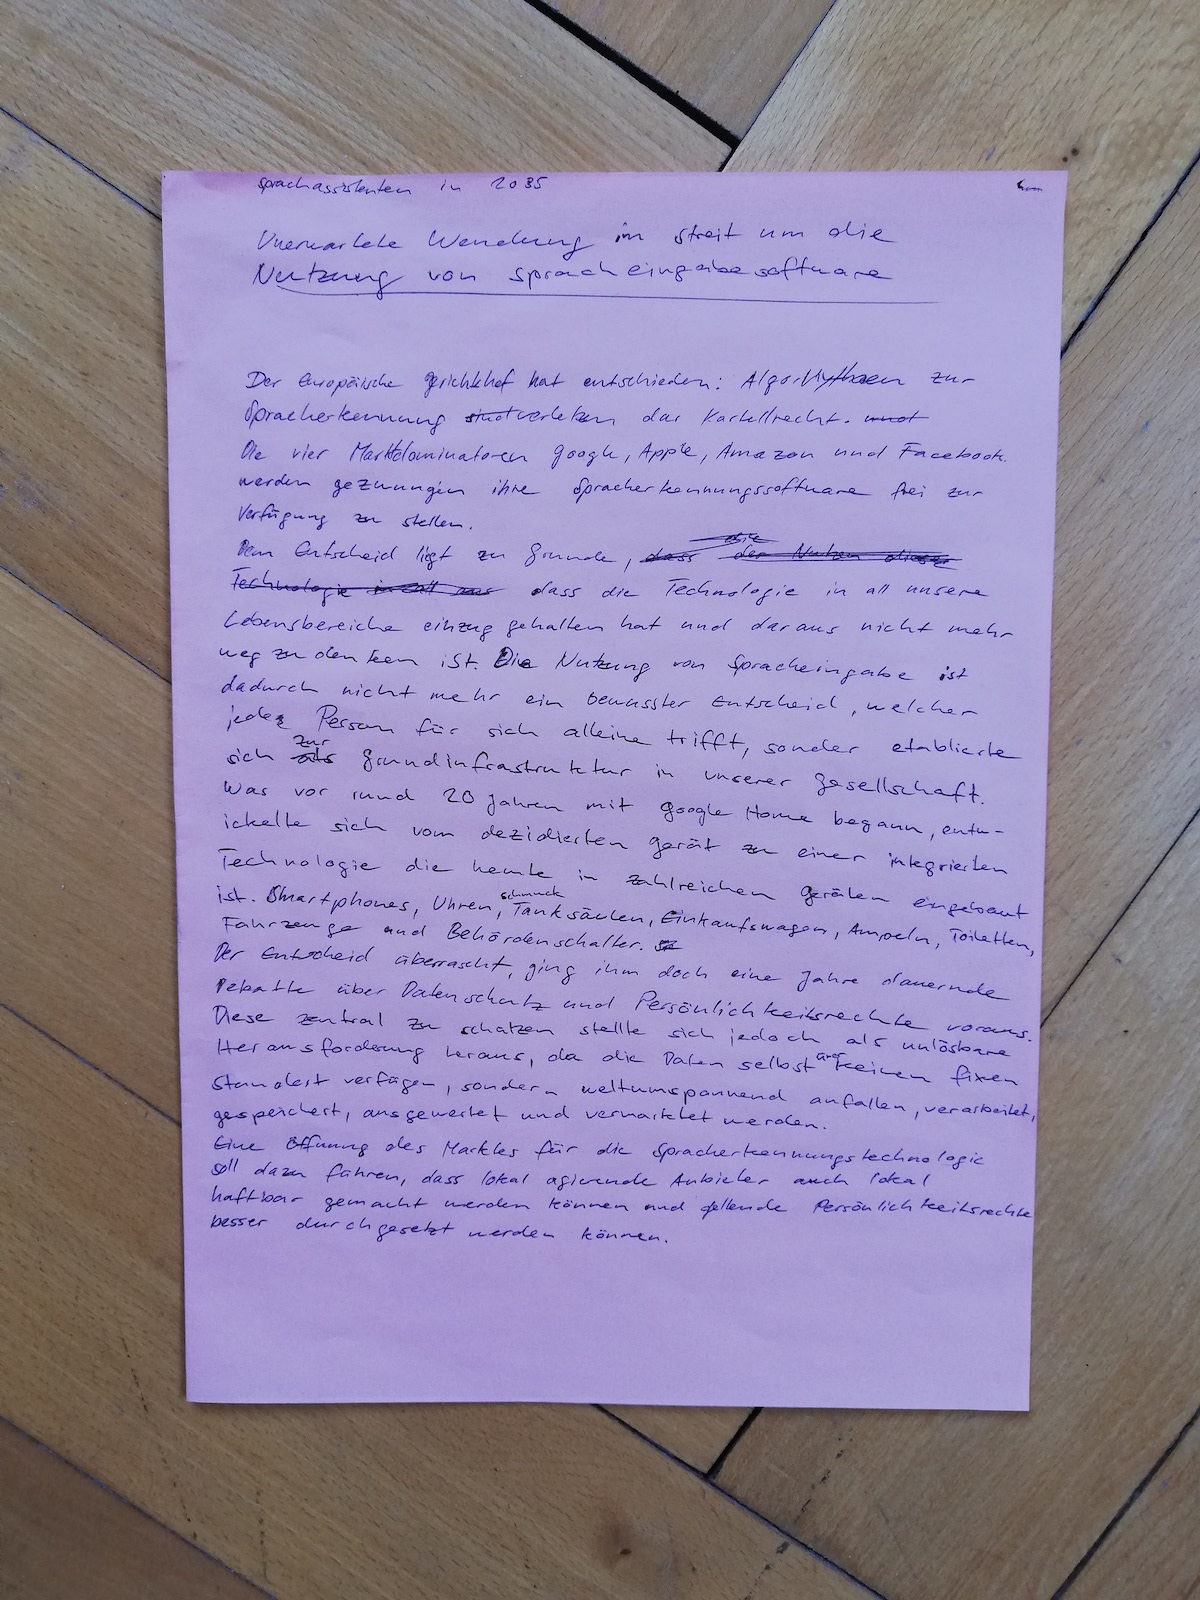 Sprachassistenten in 2035
Unerwartete Wendung im streit um die
Nutzung von spracheingabesoftware
Der Europäische gerichtshof hat entschieden: Algorithythmen zur
Spracherkennung sind verletzen das Kartellrecht. und
Die vier Marktdominatoren google, Apple, Amazon und Facebook
werden gezwungen ihre Spracherkennungssoftware frei zur
Verfügung zu stellen.
die
Dem Entscheid ligt zu Grunde, dass der Nutzen dieser
Technologie in all uns dass die Technologie in all unsere
Lebensbereiche einzug gehalten hat und daraus nicht mehr
weg zu denken ist. Die Nutzung von Spracheingabe ist
dadurch nicht mehr ein bewusster Entscheid, welcher
jede Person für sich alleine trifft, sonder etablierte
zur
sich als grundinfrastruktur in unserer gesellschaft.
Was vor rund 20 Jahren mit google Home begann, entw-
ickelte sich vom dezidierten gerät zu einer integrierten
Technologie die heute in zahlreichen geräten eingebaut
schmuck
ist. Smartphones, Uhren, Tanksäulen, Einkaufswagen, Ampeln, Toiletten,
Fahrzeuge und Behördenschalter.
Der Entscheid überrascht, ging ihm doch eine Jahre dauernde
Debatte über Datenschutz und Persönlichkeitsrechte voraus.
Diese zentral zu schützen stellte sich jedoch als unlösbare
Herausforderung heraus, da die Daten selbst über keinen fixen
standort verfügen, sondern weltumspannend anfallen, verarbeitet,
gespeichert, ausgewertet und vermarktet werden.
Eine Öffnung des Marktes für die Spracherkennungstechnologie
soll dazu führen, dass lokal agierende Anbieter auch lokal
haftbar gemacht werden können und geltende Persönlichkeitsrechte
besser durchgesetzt werden können.